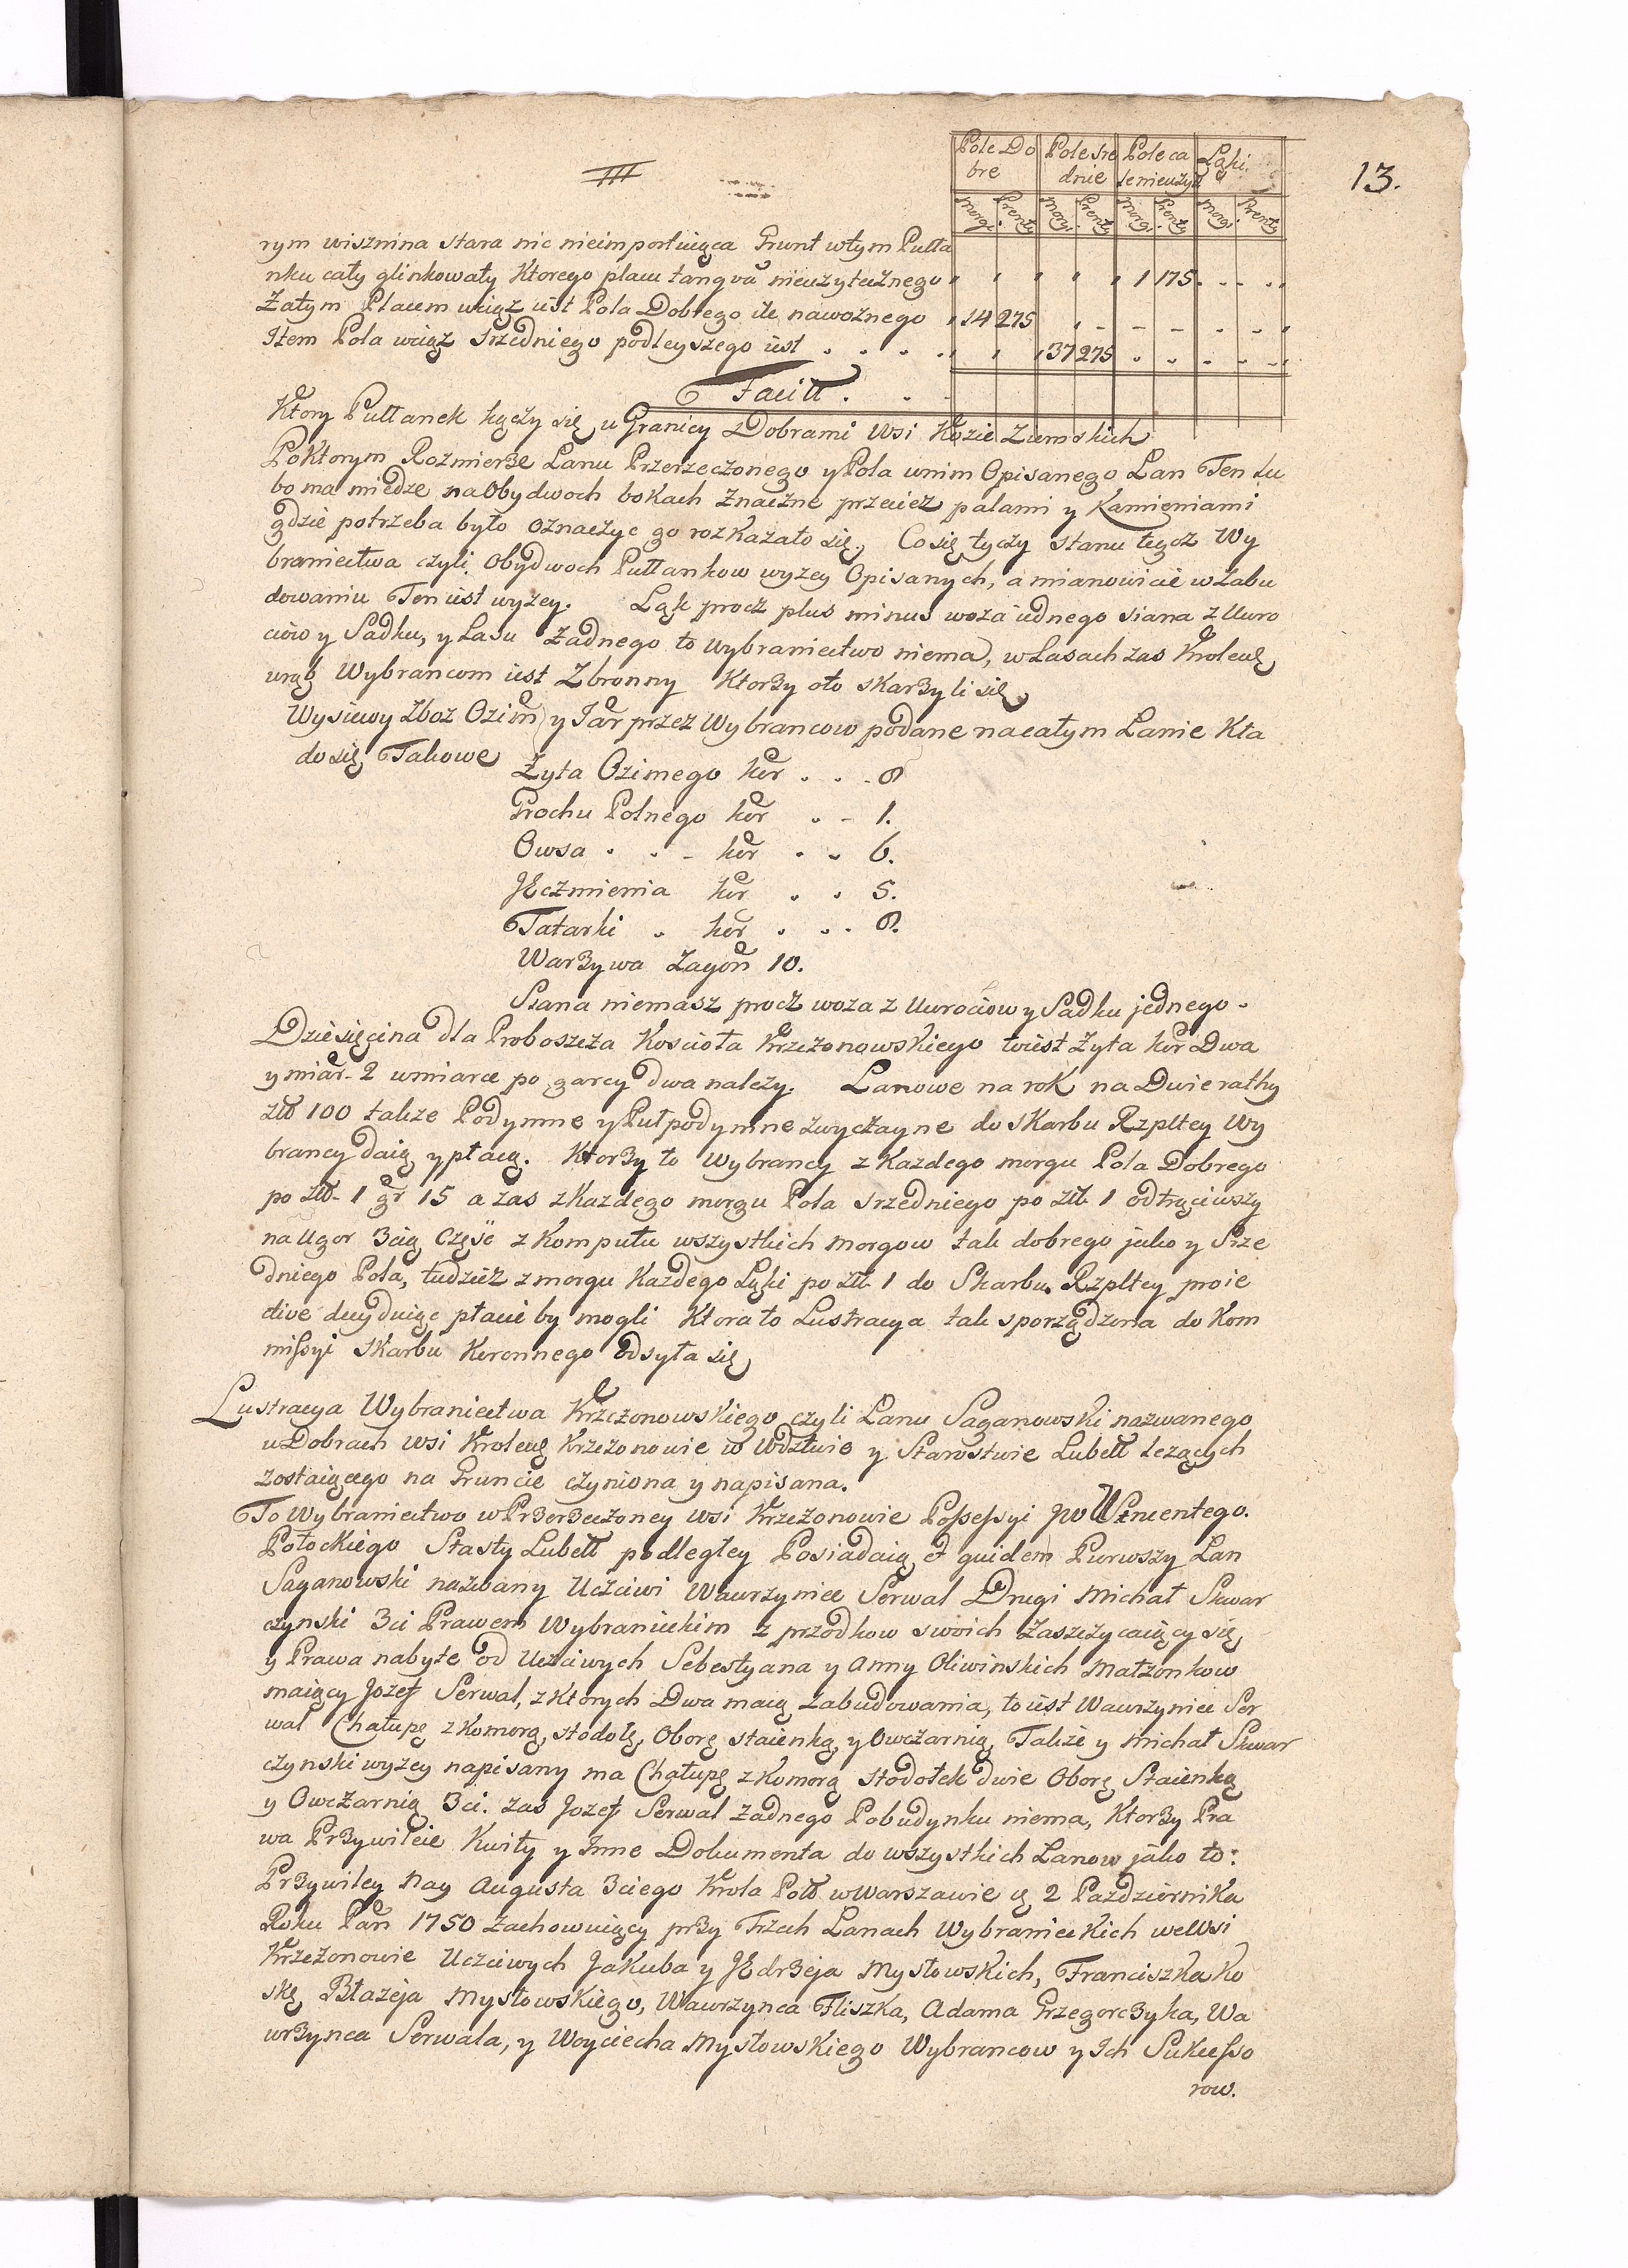 13.
Pole Do Pole sre Pole ca Łąki
bre dnie le nieużyt
Morgi Prenty Morgi Prenty Morgi Prenty Morgi Prenty
rym wisznina stara nic nieimportuiąca Grunt wtym Pułła
nku cały glinkowaty Ktorego placu tanqva nieużytecznego 1 175
Zatym Placem wciąż iest Pola Dobrego ile nawoznego 14 275
Item Pola wciąż srzedniego podleyszego iest 37 275
Facitt.
Ktory Pułłanek kączy się u Granicy Dobrami Wsi Kozic Ziemskich
Poktorym Rozmierze Lanu Przerzeczonego y Pola wnim Opisanego Lan Ten Lu
bo ma miedze na Obydwoch bokach znaczne przeciez palami y Kamieniami
gdzie potrzeba było oznaczyc go rozkazało się, Co się tyczy stanu tegoz Wy
braniectwa czyli Obydwoch Pułłankow wyzey Opisanych, a mianowicie w Zabu
dowaniu Ten iest wyzey. Łąk procz plus minus woza iednego siana z Uwro
ciow y Sadku, y Lasu żadnego to Wybraniectwo niema, w Lasach zas Krolew
wrąb Wybrancom iest Zbronny Ktorzy oto skarzyli się,
Wysiewy Zboz Ozim y Jar przez Wybrancow podane na całym Lanie Kła
do się Takowe
Zyta Ozimego kor . . . 8
Grochu Polnego kor . - 1.
Owsa . . - kor . . 6.
JĘczmienia kor . . 5.
Tatarki . kor . . . 8.
Warzywa Zagon 10.
Siana niemasz procz woza z Uwrociow y Sadku jednego.
Dziesięcina dla Proboszcza Koscioła Krzczonowskiego toiest Zyta kor Dwa
y miar. 2 wmiarce po garcy dwa nalezy. Lanowe na rok na Dwie rathy
złł 100 takze Podymne y Pułpodymne zwyczayne do skarbu Rzpltey Wy
brancy daią y płacą. Ktorzy to Wybrancy z Kazdego morgu Pola Dobrego
po złł. 1 gr 15 a zas z Kazdego morgu Pola srzedniego po złł. 1 odtrąciwszy
na Ugor 3cią Częsc z Komputu wszystkich morgow tak dobrego jako y Srze
dniego Pola, tudziez z morgu Każdego Łąki po złł. 1 do Skarbu Rzpltey proie
ctive decyduiąc płacić by mogli Ktora to Lustracya tak sporządzona do Kom
missyi Skarbu Koronnego odsyła się
Lustracya Wybraniectwa Krzczonowskiego czyli Lanu Saganowski nazwanego
w Dobrach Wsi Krolews Krzczonowie w Wdztwie y Starostwie Lubell lezących
zostaiącego na Gruncie czyniona y napisana.
To Wybraniectwo w Przerzeczoney Wsi Krzczonowie Possessyi JW Wincentego.
Potockiego Stasty Lubell podległey Posiadaią et quidem Pierwszy Lan
Saganowski nazwany Uczciwi Wawrzyniec Serwal Drugi Michał Skwar
czynski 3ci Prawem Wybranieckim z przodkow swoich Zaszczycaiący się,
y Prawa nabyte od Uczciwych Sebestyana y Anny Oliwinskich Małzonkow
maiący Jozef Serwal, z Ktorych Dwa maią Zabudowania, to iest Wawrzyniec Ser
wal Chałupę z Komorą, stodołę, Oborę staienką, y Owczarnią, Takze y Michał Skwar
czynski wyzey napisany ma Chałupę z Komorą Stodołek dwie Oborę Staienkę
y Owczarnią 3ci. zas Jozef Serwal zadnego Pobudynku niema, Ktorzy Pra
wa Przywileie Kwity y Inne Dokumenta do wszystkich Lanow jako to:
Przywiley Nay Augusta 3ciego Krola Poll w Warszawie ą 2 Pazdziernika
Roku Pan 1750 Zachowuiący przy Trzech Lanach Wybranieckich we Wsi
Krzczonowie Uczciwych Jakuba y JĘdrzeja Mysłowskich, Franciszka Ko
skę Błazeja Mysłowskiego, Wawrzynca Fliszka, Adama Grzegorczyka, Wa
wrzynca Serwala, y Woyciecha Mysłowskiego Wybrancow y Ich Sukcesso
row.